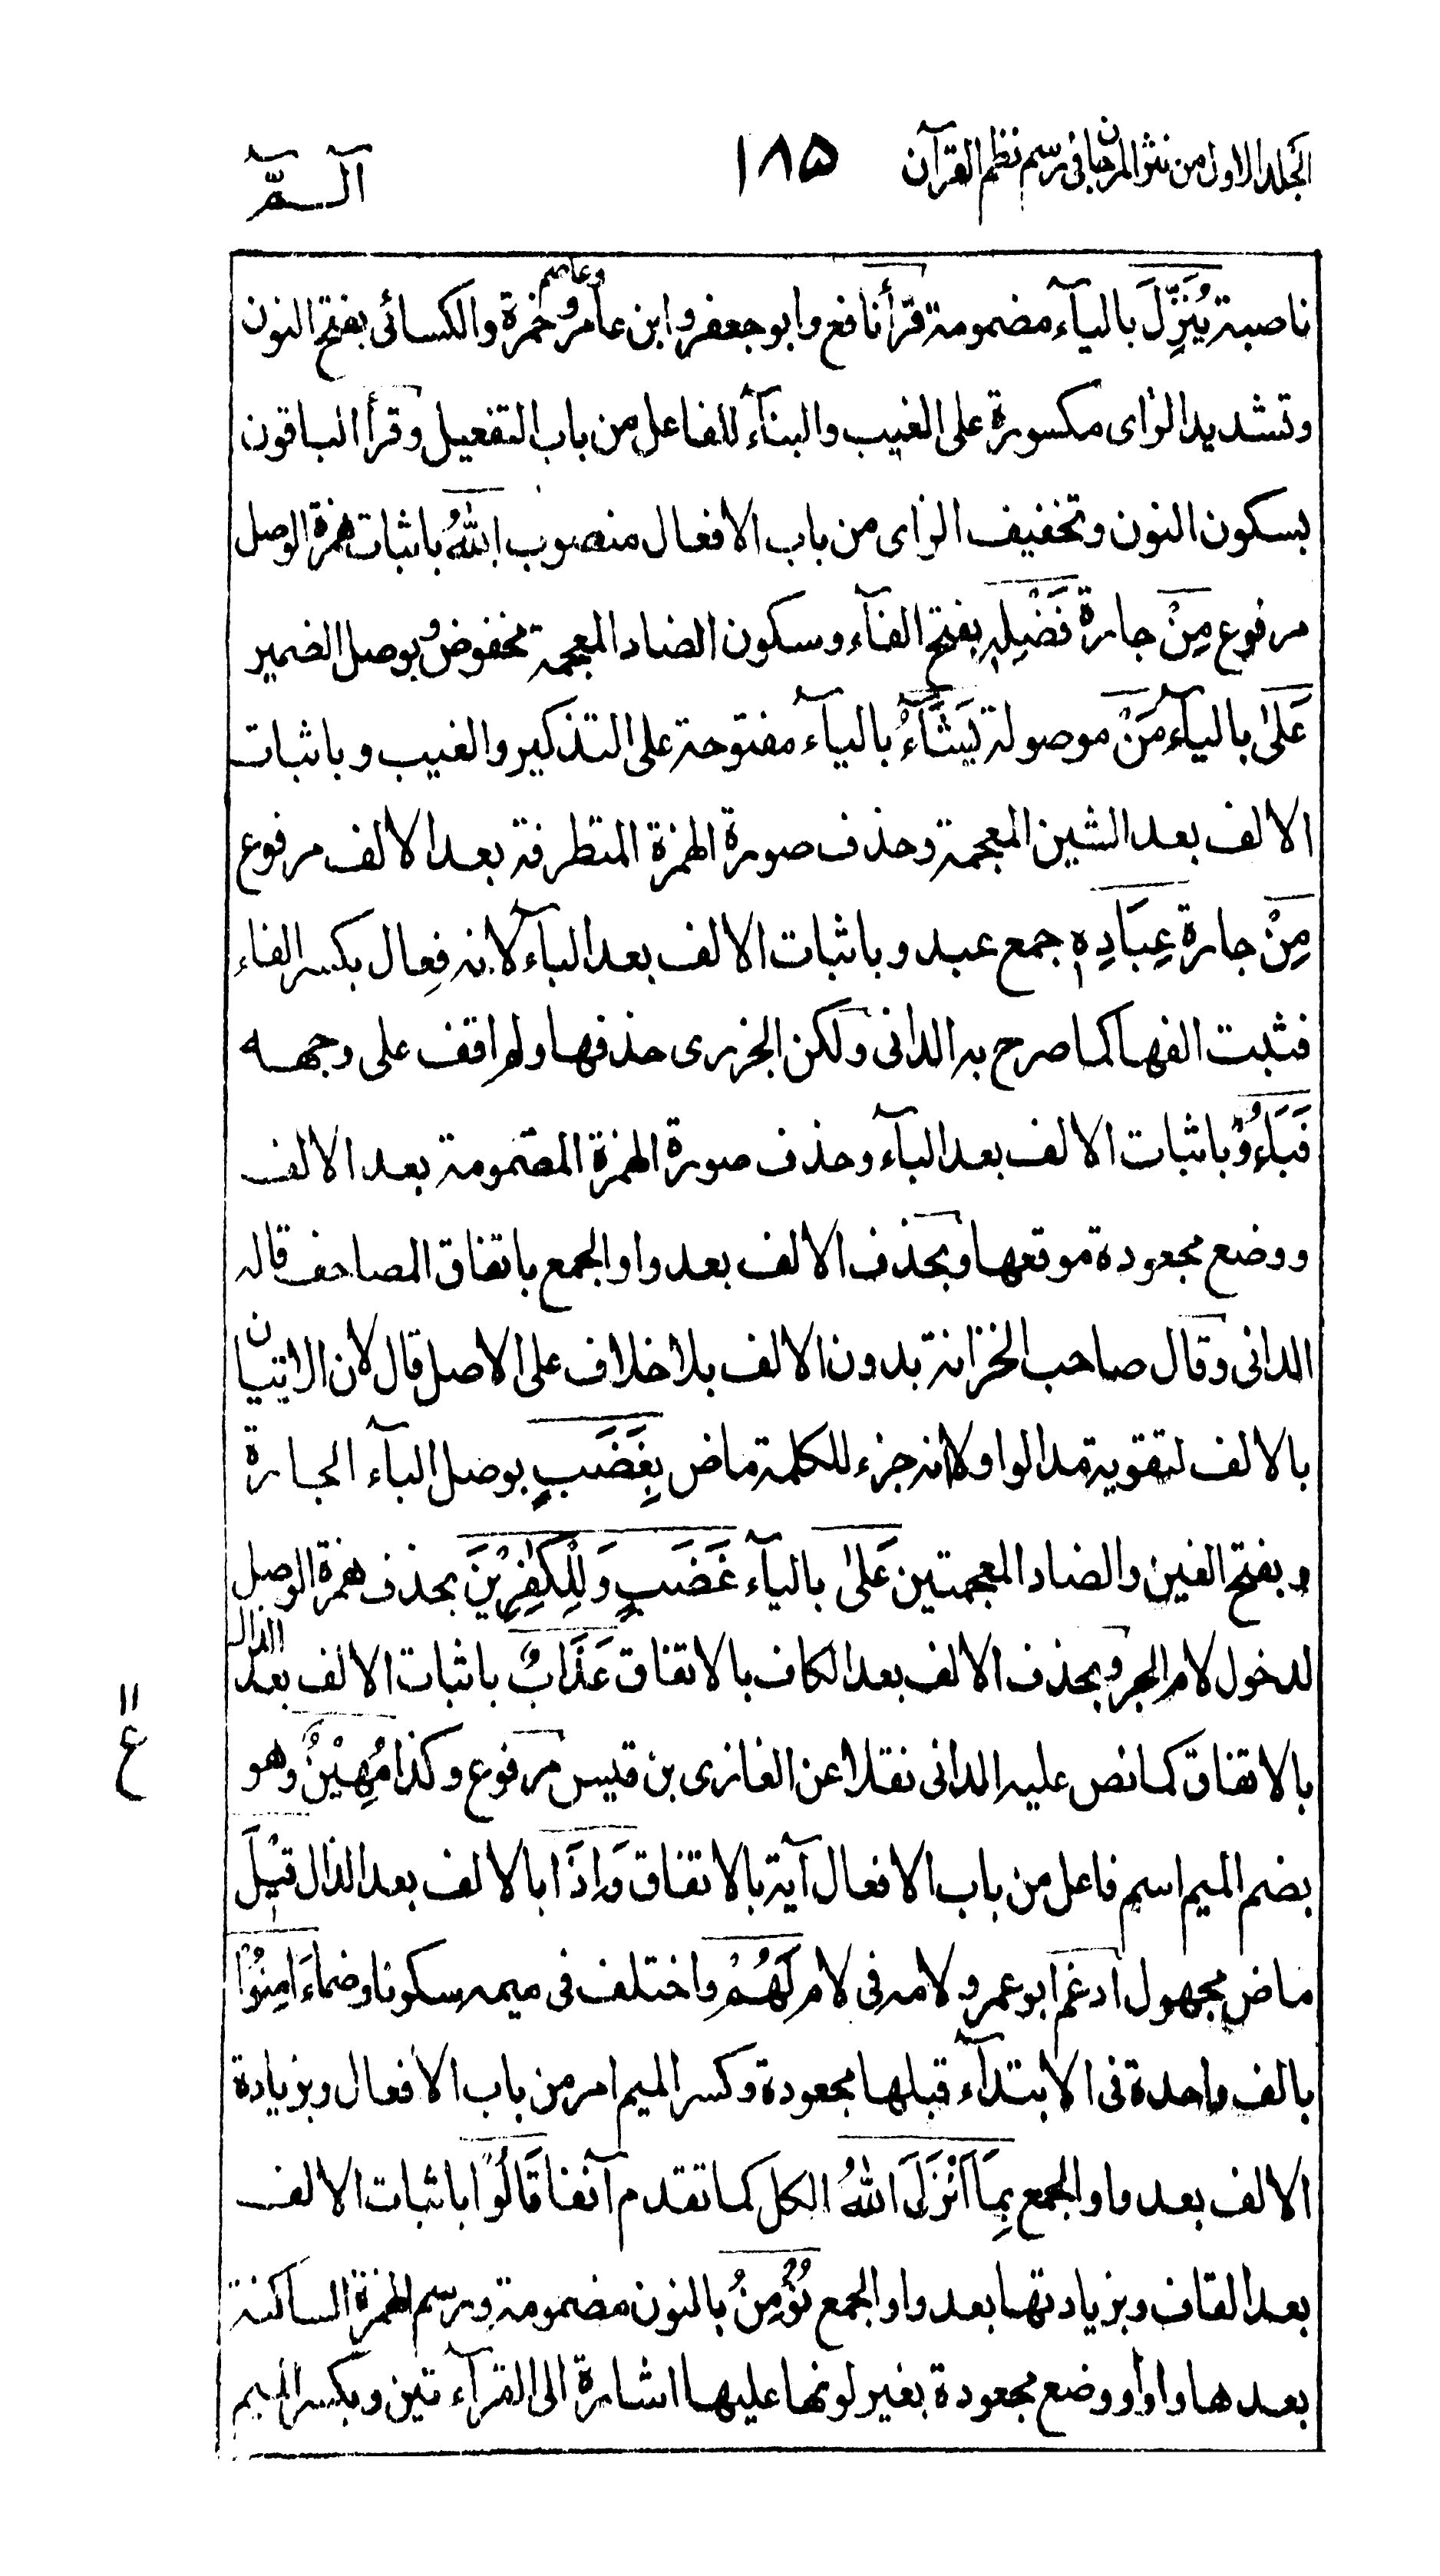 الجلد الاول من نثر المرجان فى رسم نظم القرآن ١٨٥ آلـــمّ
ناصبة يُنَزِّلَ بالياۤء مضمومة قرأ نافع وابو جعفر وابن عامر وعاصم وحمزة والكسائى بفتح النون
وتشديد الزاى مكسورة على الغيب والبناۤء للفاعل من باب التفعيل وقرأ الباقون
بسكون النون وتخفيف الزاى من باب الافعال منصوب اللّٰهُ باثبات همزة الوصل
مرفوع مِنْ جارة فَضْلِهٖ بفتح الفاۤء وسكون الضاد المعجمة مخفوض وبوصل الضمير
عَلىٰ بالياۤء مَنْ موصولة يَشَاۤءُ بالياۤء مفتوحة على التذكير والغيب وباثبات
الالف بعد الشين المعجمة وحذف صورة الهمزة المتطرفة بعد الالف مرفوع
مِنْ جارة عِبَادِهٖ جمع عبد وباثبات الالف بعد الباۤء لانه فِعال بكسر الفاء
فثبت الفها كما صرح به الدانى ولكن الجزرى حذفها ولم اقف على وجهه
فَبَاءُوْ باثبات الالف بعد الباۤء وحذف صورة الهمزة المضمومة بعد الالف
ووضع مجعودة موقعها وبحذف الالف بعد واو الجمع باتفاق المصاحف قاله
الدانى وقال صاحب الخزانة بدون الالف بلا خلاف على الاصل قال لان الاتيان
بالالف لتقوية مد الواو ولانه جزء للكلمة ماض بِغَضَبٍ بوصل الباۤء الجارة
وبفتح الغين والضاد المعجمتين عَلىٰ بالياۤء غَضَبٍ وَلِلْكٰفِرِيْنَ بحذف همزة الوصل
لدخول لام الجر وبحذف الالف بعد الكاف بالاتفاق عَذَابٌ باثبات الالف بعد الذال
بالاتفاق كما نص عليه الدانى نقلا عن الغازى بن قيس مرفوع وكذا مُهِيْنٌ وهو
۱۱
ع
بضم الميم اسم فاعل من باب الافعال آية بالاتفاق وَاِذَا بالالف بعد الذال قِيْلَ
ماض مجهول ادغم ابو عمرو لامه فى لام لَهُمْ واختلف فى ميمه سكونا وضما ءَامِنُوْا
بالف واحدة فى الابتداۤء قبلها مجعودة وكسر الميم امر من باب الافعال وبزيادة
الالف بعد واو الجمع بِمَاۤ اَنْزَلَ اللّٰهُ الكل كما تقدم آنفا قَالُوْا باثبات الالف
بعد القاف وبزيادتها بعد واو الجمع نُؤْمِنُ بالنون مضمومة ورسم الهمزة الساكنة
بعدها واوا ووضع مجعودة بغير لونها عليها اشارة الى القرآءتين وبكسر الميم